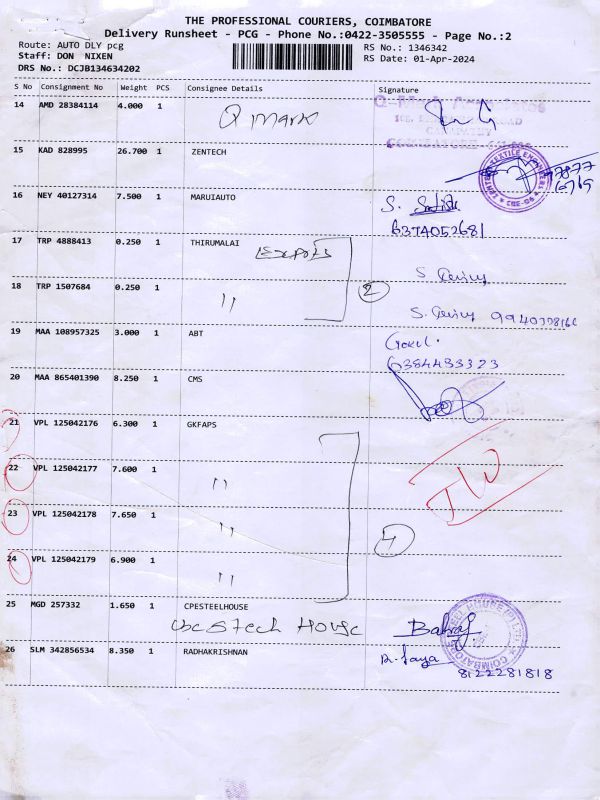 THE PROFESSIONAL COURIERS, COIMBATORE
Delivery Runsheet - PCG - Phone No.:0422-3505555 - Page No.:2
Route: AUTO DLY pcg
RS No.: 1346342
Staff: DON NIXEN
RS Date: 01-Apr-2024
DRS No.: DCJB134634202
S No Consignment No Weight PCS Consignee Details Signature
14 AMD 28384114 4.000 1
Q mark
15 KAD 828995 26.700 1 ZENTECH
16 NEY 40127314 7.500 1 MARUIAUTO
S. Satish
6374052681
17 TRP 4888413 0.250 1 THIRUMALAI
Exports
18 TRP 1507684 0.250 1
"
2
19 MAA 108957325 3.000 1 ABT
Gokul.
6384433323
20 MAA 865401390 8.250 1 CMS
21 VPL 125042176 6.300 1 GKFAPS
22 VPL 125042177 7.600 1
"
23 VPL 125042178 7.650 1
"
4
24 VPL 125042179 6.900 1
"
25 MGD 257332 1.650 1 CPESTEELHOUSE
House
26 SLM 342856534 8.350 1 RADHAKRISHNAN
8122281818